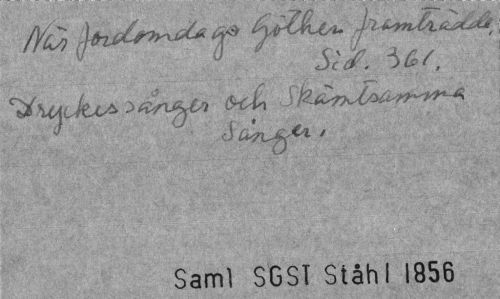 När fordomdags Göthen framträdde,
Sid. 361.
Dryckessånger och Skämtsamma
Sånger.
Saml SGST Ståhl 1856